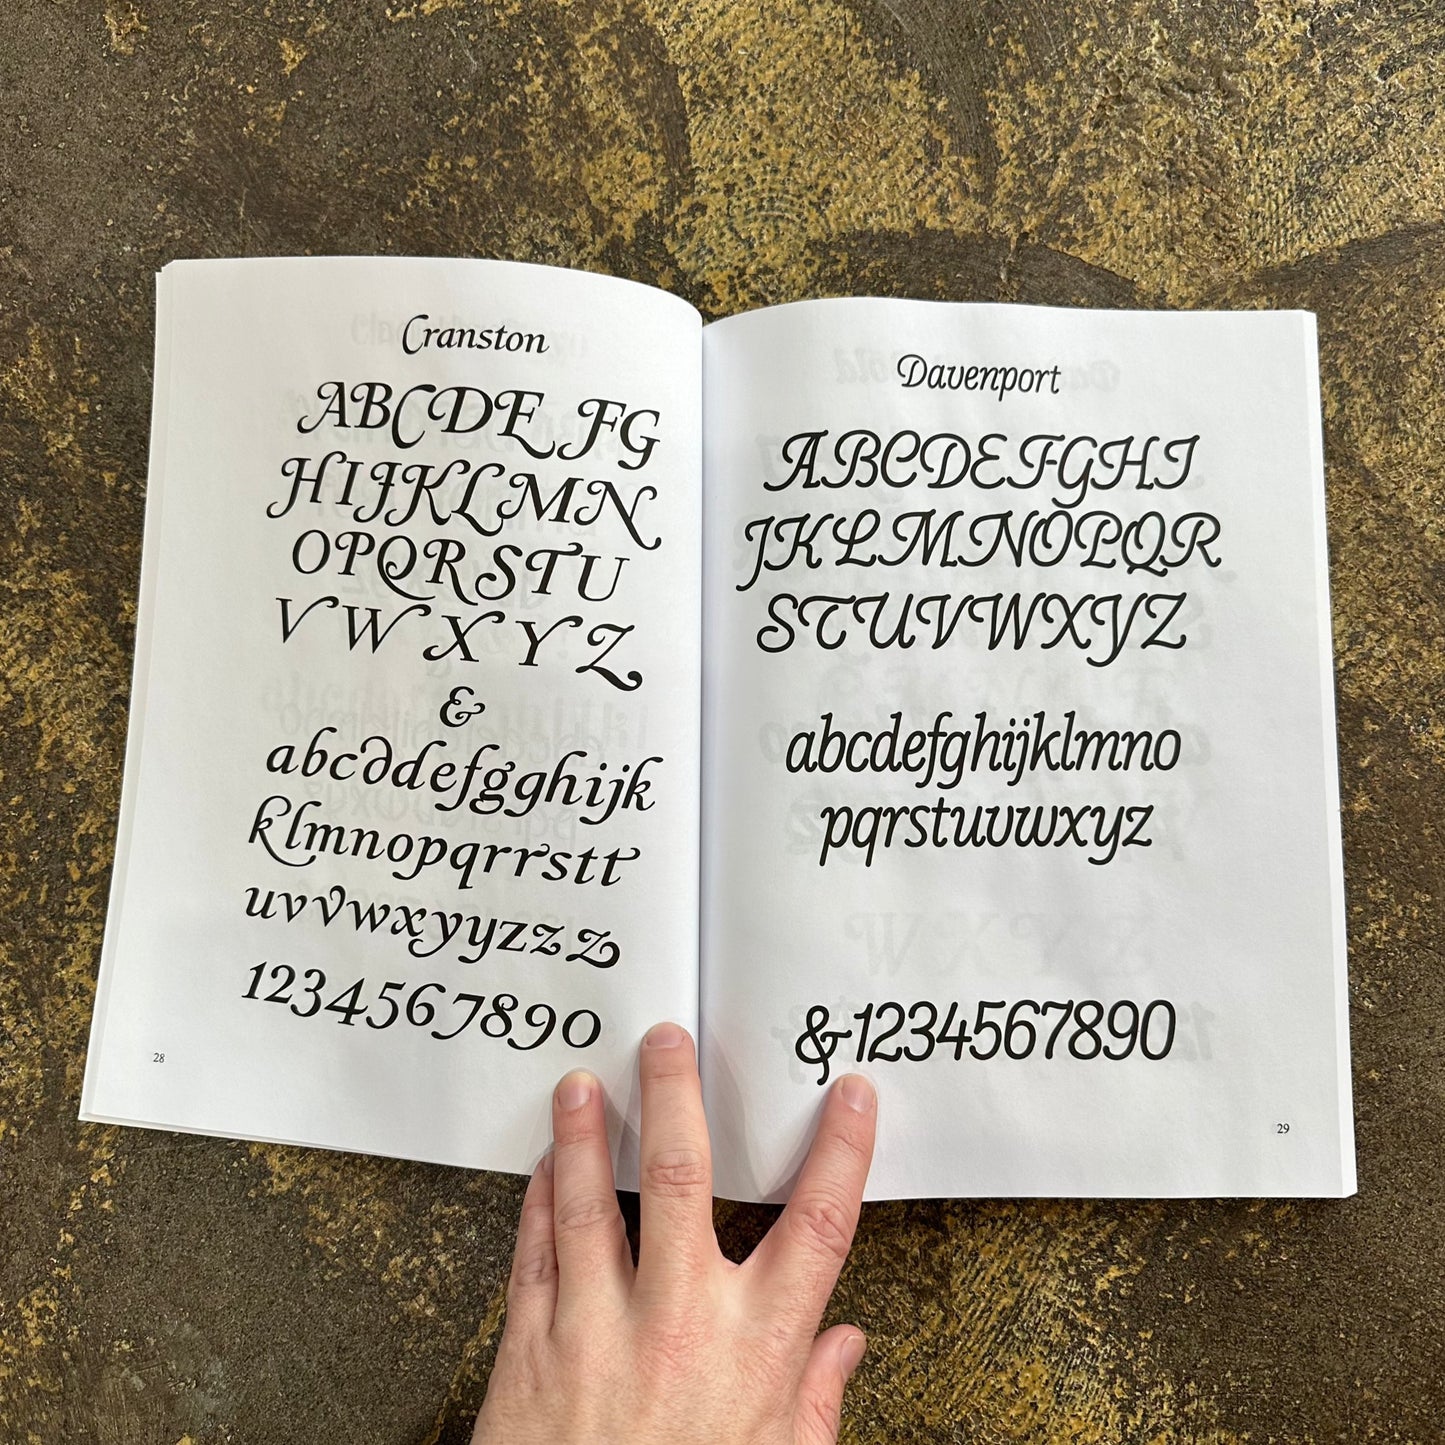 Cranston
ABCDE FG
HIJJKLMN
OPQRSTU
VWXYZ
&
abcddefgghijk
klmnopqrrstt
uvvwxyyzzz
1234567890
28
Davenport
ABCDEFGHI
JKLMNOPQR
STUVWXYZ
abcdefghijklmno
pqrstuvwxyz
&1234567890
29